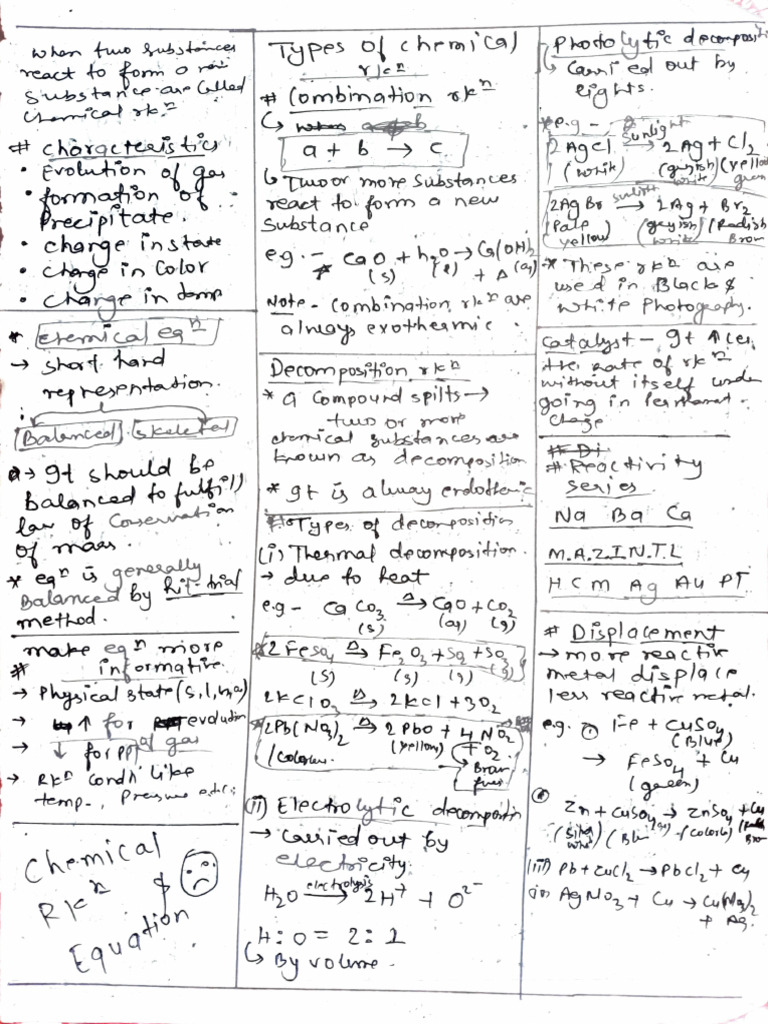 when two substances
react to form a new
substance are called
chemical rkⁿ
# characteristics
• Evolution of gas
• formation of
precipitate.
• change in state
• change in color
• change in temp
* chemical eqⁿ
→ short hand
representation.
Balanced skeletal
→ It should be
balanced to fulfill
law of Conservation
of mass.
* eqⁿ is generally
Balanced by hit-trial
method.
make eqⁿ more
# informative
→ Physical state (s, l, g, aq)
→ ↑ for evolution
of gas
→ ↓ for ppt
→ Rkⁿ condⁿ like
temp., Pressure etc.
Chemical
Rkⁿ &
Equation
Types of chemical
rkⁿ
# Combination rkⁿ
a + b → c
↳ Two or more substances
react to form a new
substance
eg. - CaO + h₂O → Ca(OH)₂
(s) (l) + Δ (aq)
Note - Combination rkⁿ are
always exothermic.
Decomposition rkⁿ
* a compound spilts →
two or more
chemical substances are
known as decomposition
* It is alway endothermic
Types of decomposition
(i) Thermal decomposition.
→ due to heat
e.g - CaCO₃ Δ→ CaO + CO₂
(s) (aq) (g)
2FeSO₄ Δ→ Fe₂O₃ + SO₂ + SO₃
(s) (s) (g) (g)
2KClO₃ Δ→ 2KCl + 3O₂
2Pb(NO₃)₂ Δ→ 2PbO + 4NO₂
(yellow) + O₂
Brown
fumes
(ii) Electrolytic decomposition
→ Carried out by
electricity
H₂O electrolysis→ 2H⁺ + O²⁻
H : O = 2 : 1
↳ By volume.
Photolytic decomposition
↳ Carried out by
lights.
* e.g -
2AgCl sunlight→ 2Ag + Cl₂
(white) (greyish white) (yellow green)
2AgBr sunlight→ 2Ag + Br₂
(Pale yellow) (greyish white) (Radish Brown)
* These rkⁿ are
used in Black &
white Photography.
Catalyst - It ↑ces
the rate of rkⁿ
without itself under
going in Permanent
change
# Reactivity
series
Na Ba Ca
M.A.Z.I.N.T.L
H C M Ag Au PT
# Displacement
→ more reactive
metal displace
less reactive metal.
e.g. Fe + CuSO₄
(Blue)
→ FeSO₄ + Cu
(green)
Zn + CuSO₄ → ZnSO₄ + Cu
(iii) Pb + CuCl₂ → PbCl₂ + Cu
AgNO₃ + Cu → Cu(NO₃)₂
+ Ag.